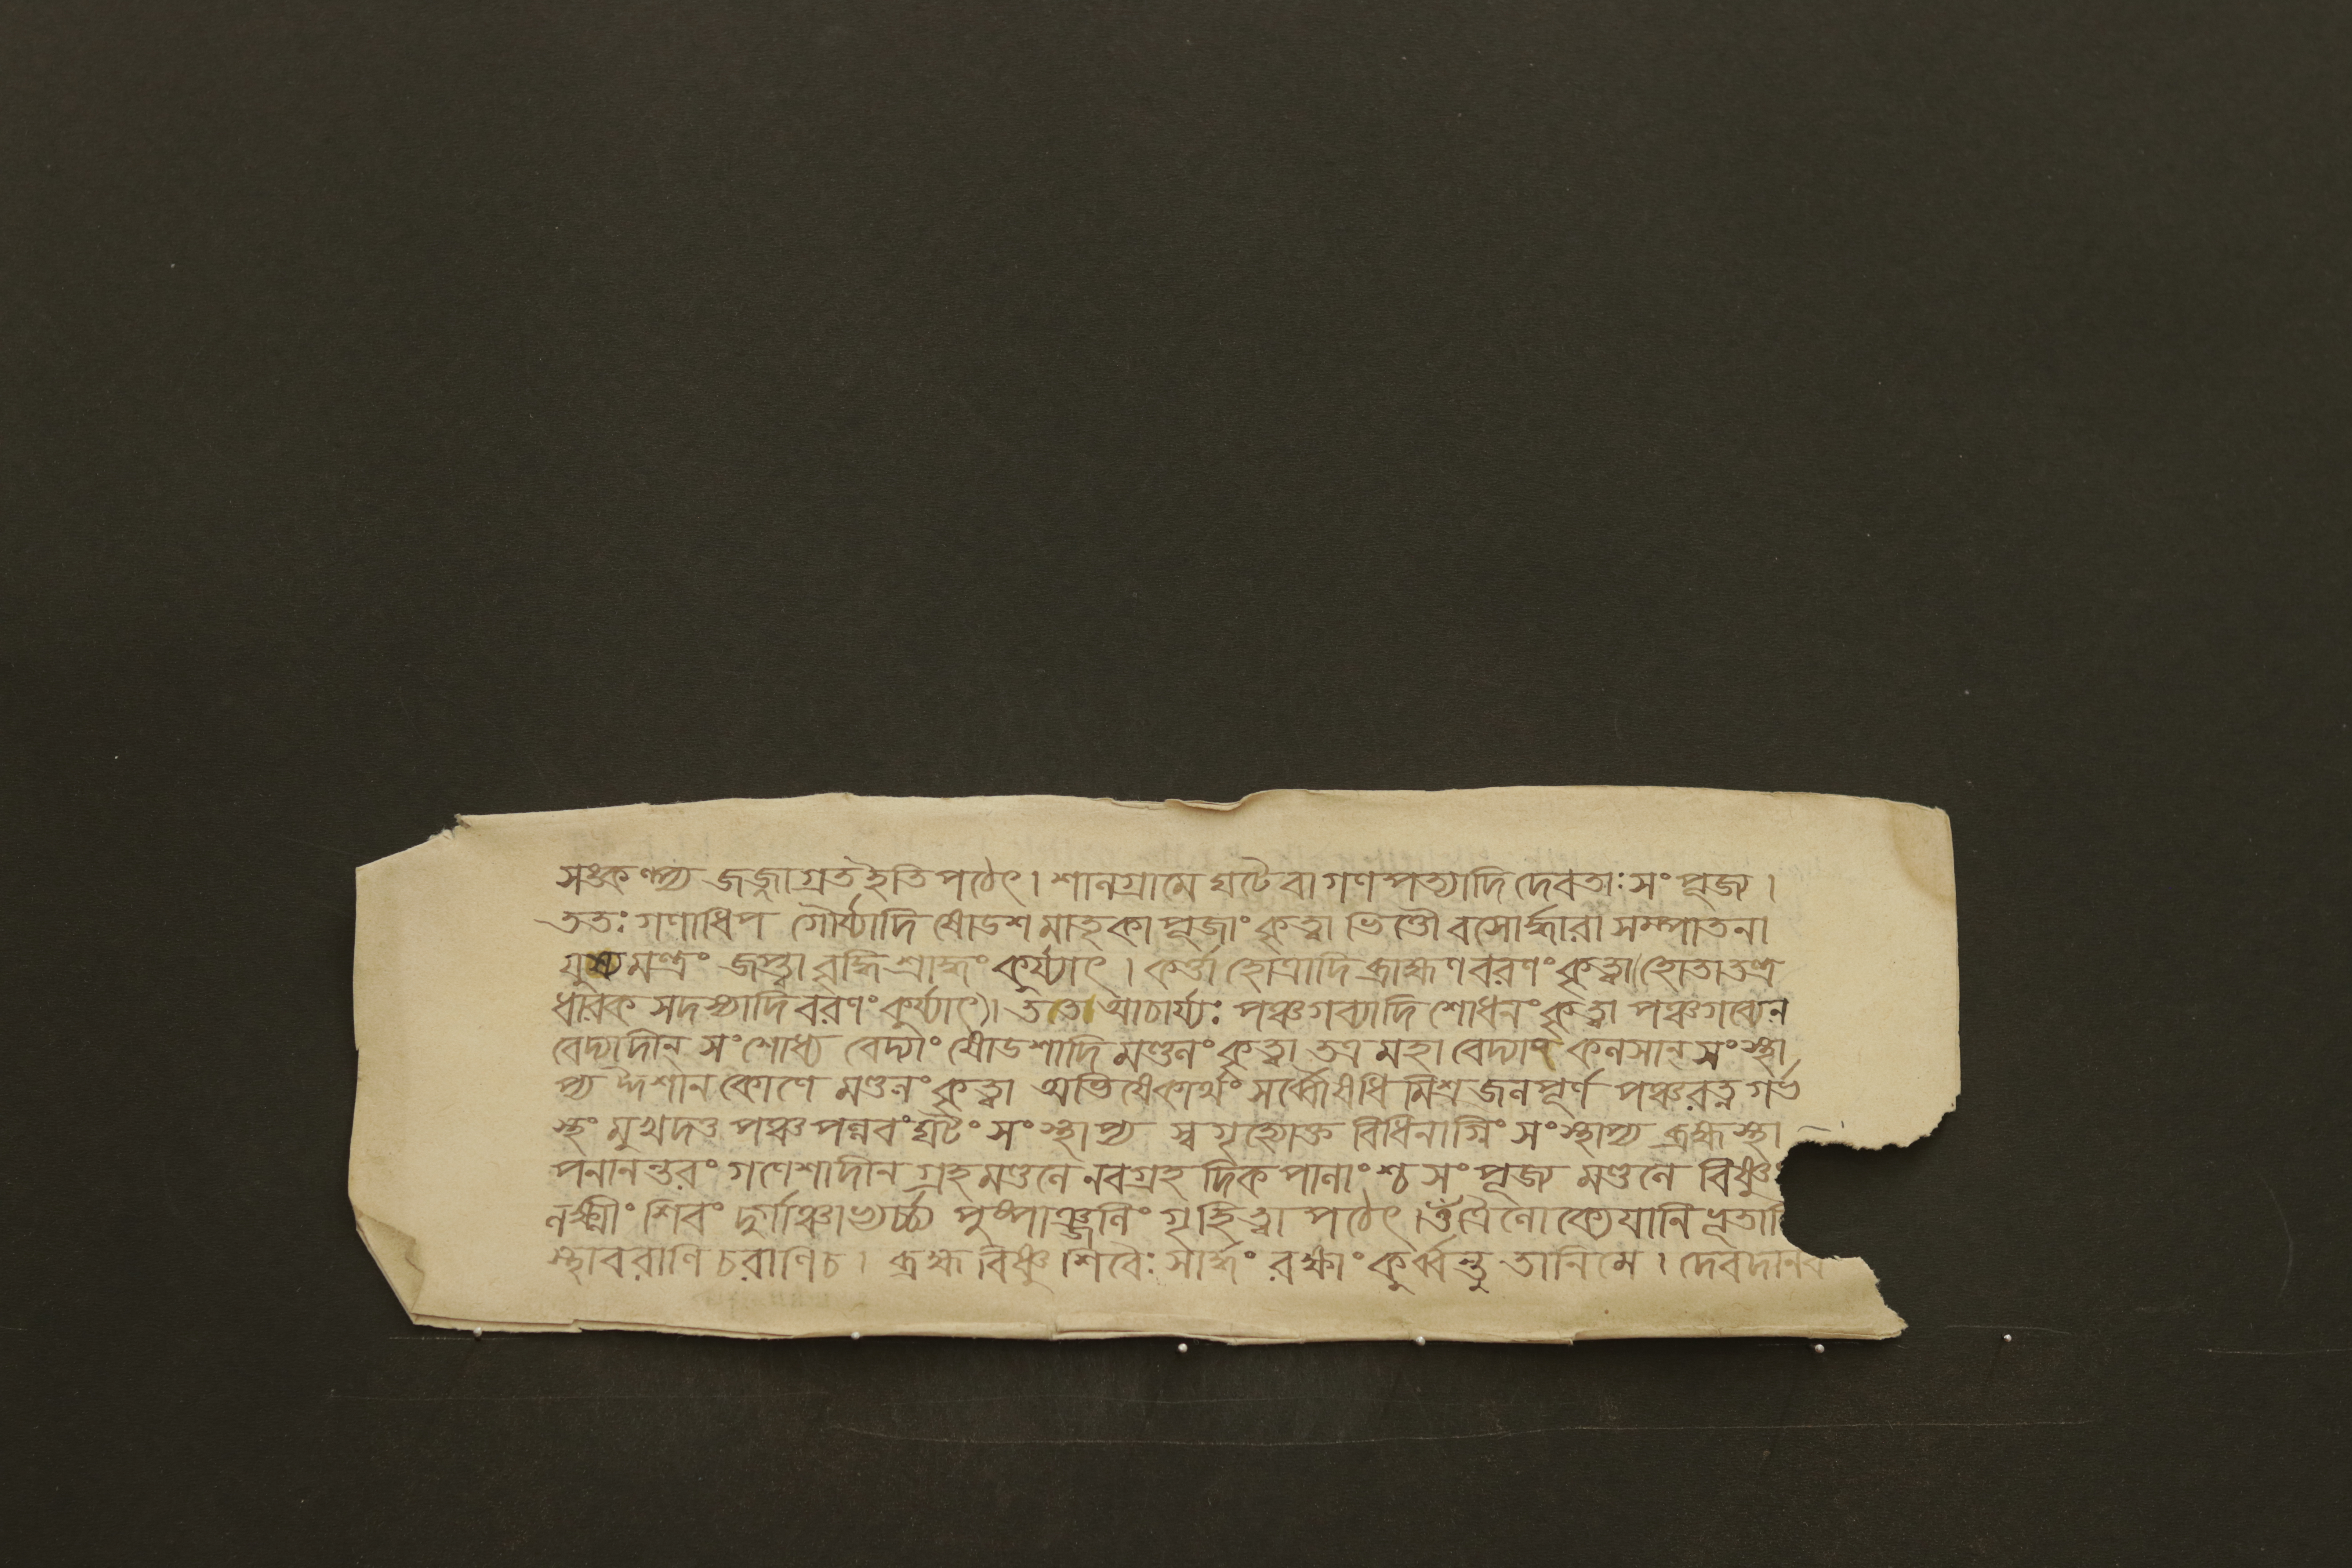 সঙ্কল্প্য জজ্জাগ্রত ইতি পঠেৎ। শালগ্রামে ঘটে বা গণপত্যাদি দেবতাঃ সংপূজ্য।
ততঃ গণাধিপ গৌর্য্যাদি ষোডশ মাতৃকা পূজাং কৃত্বা ভিত্তৌ বসোর্দ্ধারা সম্পাতনা
যুষ্য মন্ত্রং জপ্ত্বা বৃদ্ধি শ্রাদ্ধং কুর্য্যাৎ। কর্ত্তা হোত্রাদি ব্রাহ্মণ বরণং কৃত্বা (হোতা তন্ত্র
ধারক সদস্যাদি বরণং কুর্য্যাৎ)। ততো আচার্য্যঃ পঞ্চগব্যাদি শোধনং কৃত্বা পঞ্চগব্যেন
বেদ্যাদীন্ সংশোধ্য বেদ্যাং ষোডশাদি মণ্ডলং কৃত্বা তত্র মহা বেদ্যাং কলসান্ সংস্থা
প্য ঈশান কোণে মণ্ডলং কৃত্বা অভিষেকার্থং সর্ব্বৌষধি মিশ্র জলপূর্ণ পঞ্চরত্ন গর্ভ
স্থং মুখদত্ত পঞ্চ পল্লবং ঘটং সংস্থাপ্য স্ব গৃহ্যোক্ত বিধিনাগ্নিং সংস্থাপ্য ব্রহ্ম স্থা
পনানন্তরং গণেশাদীন গ্রহ মণ্ডলে নবগ্রহ দিকপালাংশ্চ সংপূজ্য মণ্ডলে বিষ্ণুং
লক্ষ্মীং শিবং দুর্গাঞ্চাভ্যর্চ্চ্য পুষ্পাঞ্জলিং গৃহিত্বা পঠেৎ। ওঁ ত্রৈলোক্যে যানি ভূতানি
স্থাবরাণি চরাণি চ। ব্রহ্ম বিষ্ণু শিবৈঃ সার্দ্ধং রক্ষাং কুর্ব্বন্তু তানি মে। দেবদানব